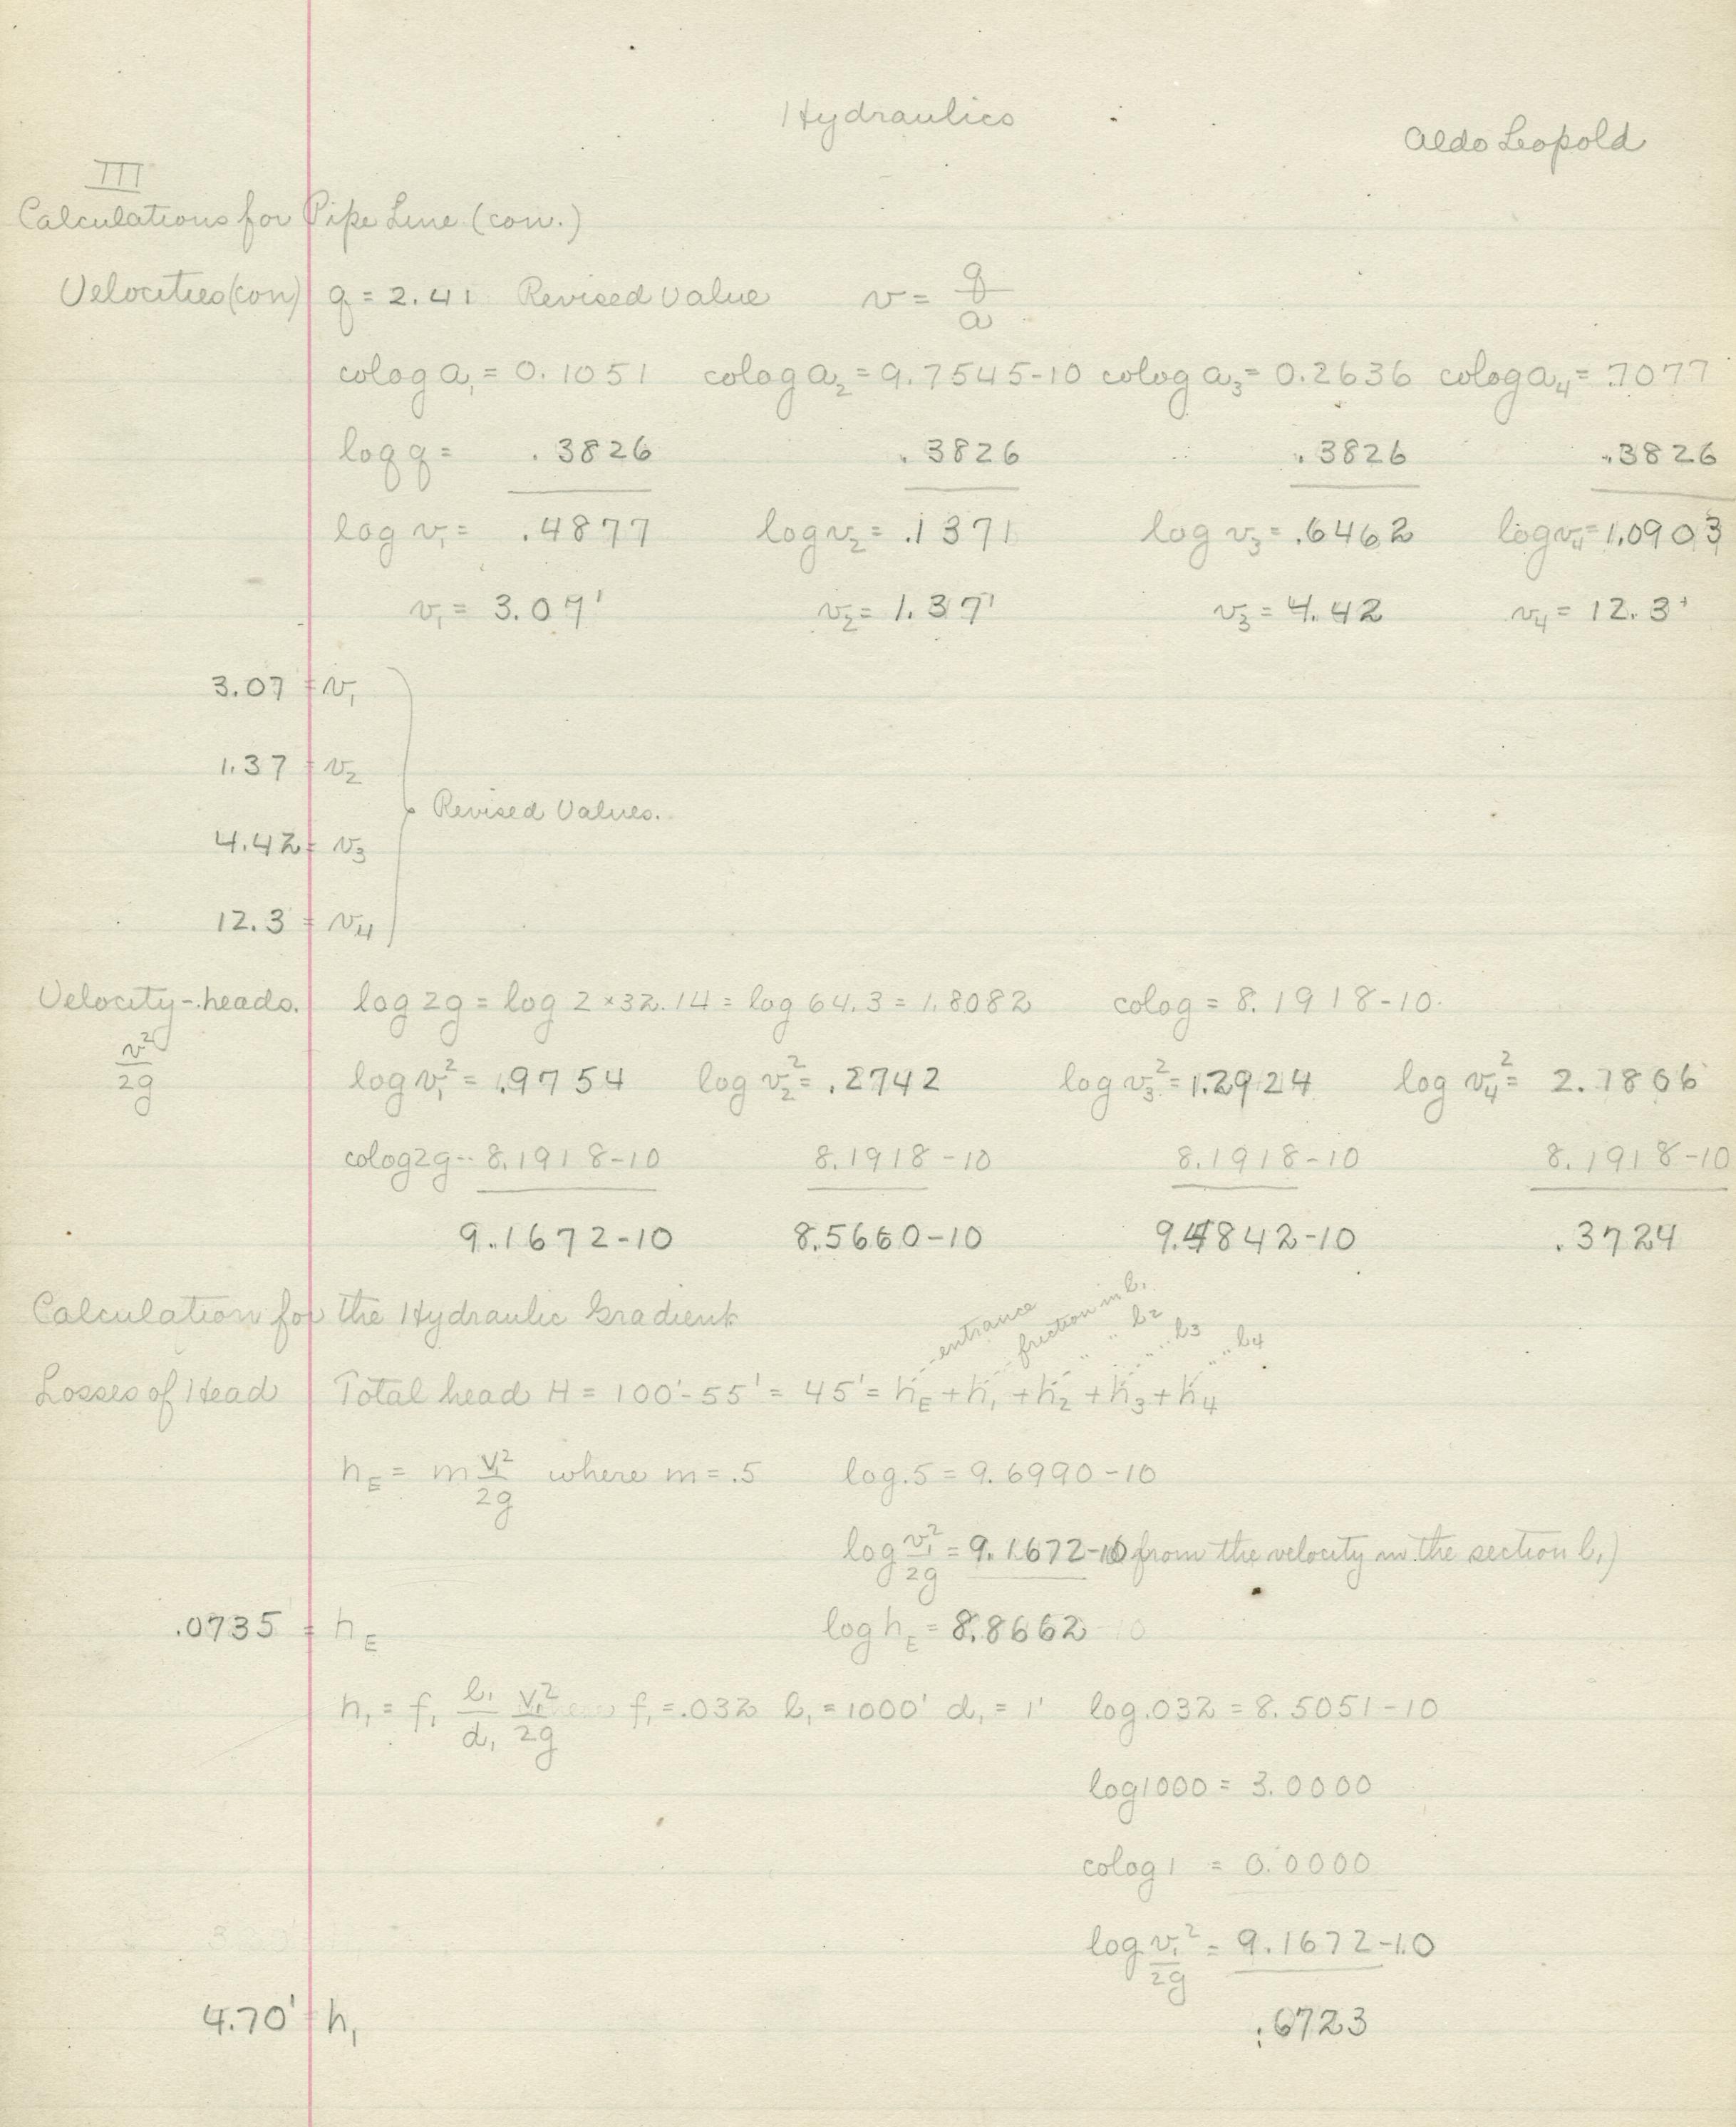 Hydraulics
Aldo Leopold
III
Calculations for Pipe Line (con.)
Velocities (con) q = 2.41 Revised Value v = q/a
colog a₁ = 0.1051 colog a₂ = 9.7545-10 colog a₃ = 0.2636 colog a₄ = .7077
log q = .3826 .3826 .3826 .3826
log v₁ = .4877 log v₂ = .1371 log v₃ = .6462 log v₄ = 1.0903
v₁ = 3.07' v₂ = 1.37' v₃ = 4.42 v₄ = 12.3'
3.07 = v₁
1.37 = v₂
Revised Values.
4.42 = v₃
12.3 = v₄
Velocity-heads. log 2g = log 2 × 32.14 = log 64.3 = 1.8082 colog = 8.1918-10.
v²/2g
log v₁² = .9754 log v₂² = .2742 log v₃² = 1.2924 log v₄² = 2.1806
colog 2g = 8.1918-10 8.1918-10 8.1918-10 8.1918-10
9.1672-10 8.5660-10 9.4842-10 .3724
Calculation for the Hydraulic Gradient
entrance friction in l₁ " " l₂ " " l₃ " " l₄
Losses of Head Total head H = 100'-55' = 45' = h_E + h₁ + h₂ + h₃ + h₄
h_E = m v²/2g where m = .5 log .5 = 9.6990-10
log v₁²/2g = 9.1672-10 from the velocity in the section l₁)
.0735 = h_E log h_E = 8.8662-10
h₁ = f₁ l₁/d₁ v₁²/2g where f₁ = .032 l₁ = 1000' d₁ = 1' log .032 = 8.5051-10
log 1000 = 3.0000
colog 1 = 0.0000
log v₁²/2g = 9.1672-10
4.70' = h₁ .6723